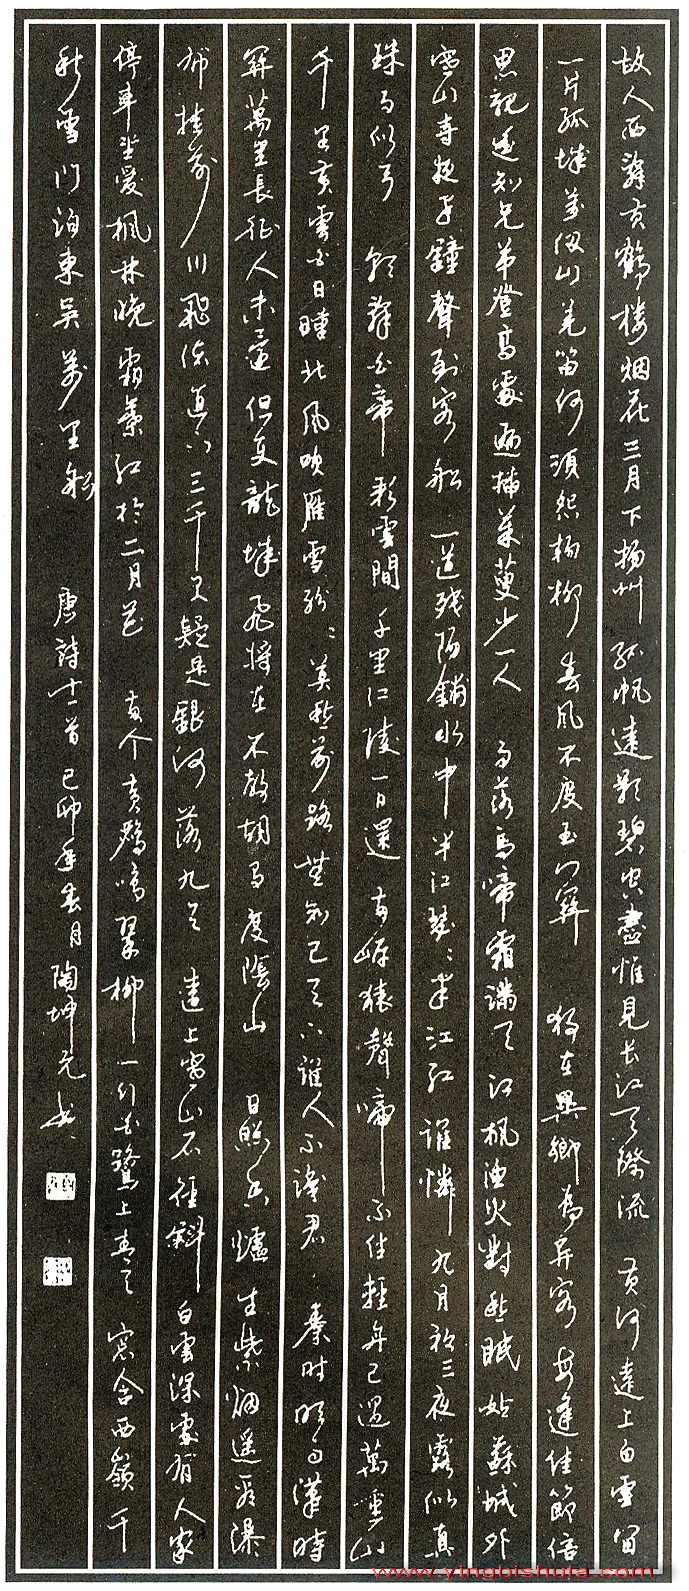 故人西辞黄鹤楼烟花三月下扬州孤帆远影碧空尽惟见长江天际流 黄河远上白云间
一片孤城万仞山羌笛何须怨杨柳春风不度玉门关 独在異鄉为异客每逢佳節倍
思親遥知兄弟登高處遍插茱萸少一人 月落烏啼霜满天江枫渔火對愁眠姑蘇城外
寒山寺夜半鐘聲到客船 一道残阳鋪水中半江瑟〻半江红谁憐九月初三夜露似真
珠月似弓 朝辞白帝彩雲間千里江陵一日還 两岸猿聲啼不住轻舟已过萬重山
千里黄雲白日曛北风吹雁雪纷〻莫愁前路無知己天下谁人不識君 秦时明月漢時
関萬里長征人未還但使龍城飛将在不教胡马度陰山 日照香爐生紫烟遥看瀑
布挂前川飛流直下三千尺疑是銀河落九天 遠上寒山石徑斜白雲深處有人家
停車坐愛楓林晚霜葉红於二月花 两个黄鹂鸣翠柳一行白鷺上青天窗含西嶺千
秋雪门泊東吴萬里船 唐詩十一首己卯年春月陶坤元书
www.yingbishufa.com